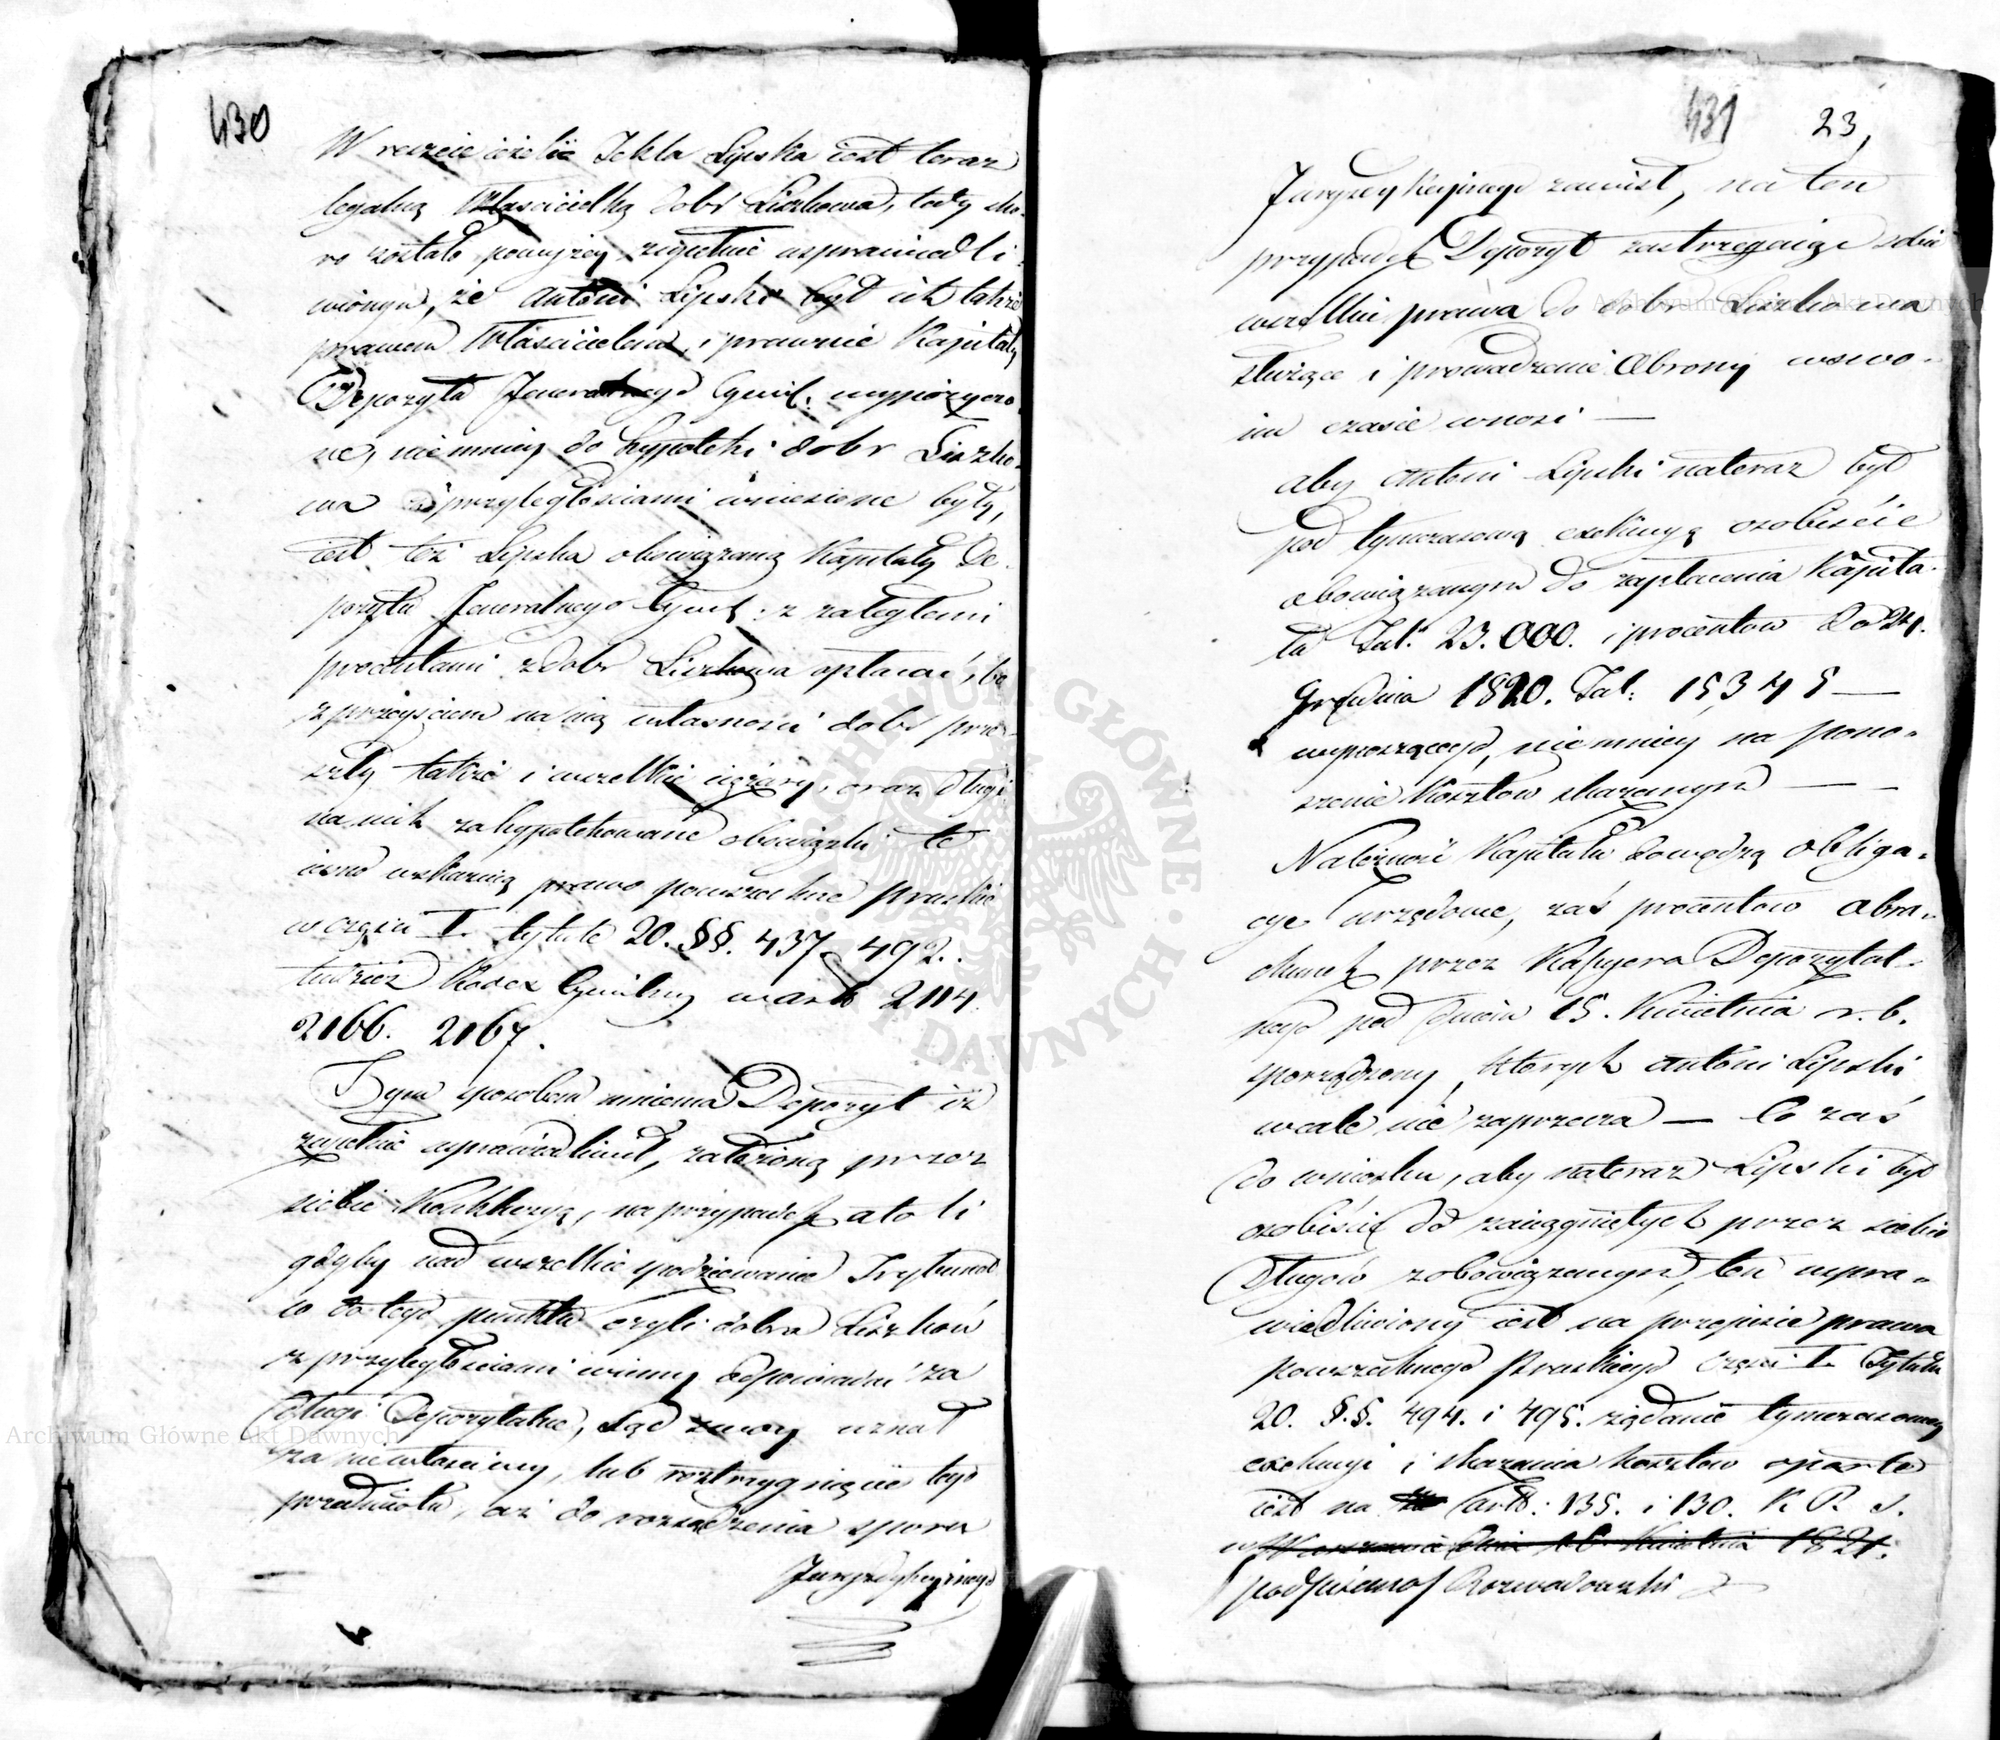 430
W reszcie ieżelić Tekla Lipska iest teraz
legalną Właścicielką dóbr Liszkowa, tedy sko-
ro zostało powyżey zupełnie usprawiedli-
wionym, że Antoni Lipski był ich także
prawem Właścicielem, i prawnie Kapitały
Depozytu Jeneralnego Cywil: wypożyczo-
ne, niemniey do hypoteki dobr Liszko-
wa z przyległościami wniesione były,
iest też Lipska obowiązaną Kapitały De-
pozytu Jeneralnego Cywil: z zaległemi
procentami z dobr Liszkowa opłacać, bo
z przejściem na nią własności dobr prze-
szły także i wszelkie ciężary, oraz długi
na nich zahypotekowane obowiązki te
iasno wskazuią prawo powszechne pruskie
w częsci I. tytule 20. §§. 437. 492.
tudzież Kodex Cywilny w art: 2114.
2166. 2167.
Tym sposobem mniema Depozyt iż
zupełnie usprawiedliwił, założoną przez
siebie Konkluzyą, na przypadek atoli
gdyby nad wszelkie spodziewanie Trybunał
co do tego punktu czyli dobra Liszków
z przyległościami winny odpowiadać za
długi Depozytalne, Sąd swoy uznał
za niewłaściwy, lub rozstrzygnięcie tego
przedmiotu, aż do rozsądzenia sporu
Juryzdykcyinego
431 23,
Juryzdykcyinego zawiesił, na ten
przypadek Depozyt zastrzegaiąc sobie
wszelkie prawa do dobr Liszkowa
służące i prowadzenie Obrony w swo-
im czasie wnosi —
aby Antoni Lipski na teraz był
pod tymczasową exekucyą osobiście
obowiązanym do zapłacenia Kapita-
łu Tal: 23.000. i procentow do 24.
Grudnia 1820. Tal: 15345 —
wynoszącego, niemniey na pono-
szenie Kosztow skazanym —
Należność Kapitału dowodzą obliga-
cye urzędowe, zaś procentow obra-
chunek przez Kassyera Depozytal-
nego pod dniem 15. Kwietnia r. b.
sporządzony, których Antoni Lipski
wcale nie zaprzecza — Co zaś
do wniosku, aby na teraz Lipski był
osobiście do zaciągniętych przez siebie
Długów zobowiązanym, ten uspra-
wiedliwiony iest na przepisie prawa
powszechnego Pruskiego Części I. Tytułu
20. §.§. 494. i 495. żądanie tymczasowey
exekucyi i skazania kosztow oparte
iest na art: 135. i 130. K. P. S.
w Warszawie dnia 16. Kwietnia 1821.
podpisano/ Rozwadowski
Archiwum Główne Akt Dawnych
Archiwum Główne Akt Dawnych
ARCHIWUM GŁÓWNE AKT DAWNYCH